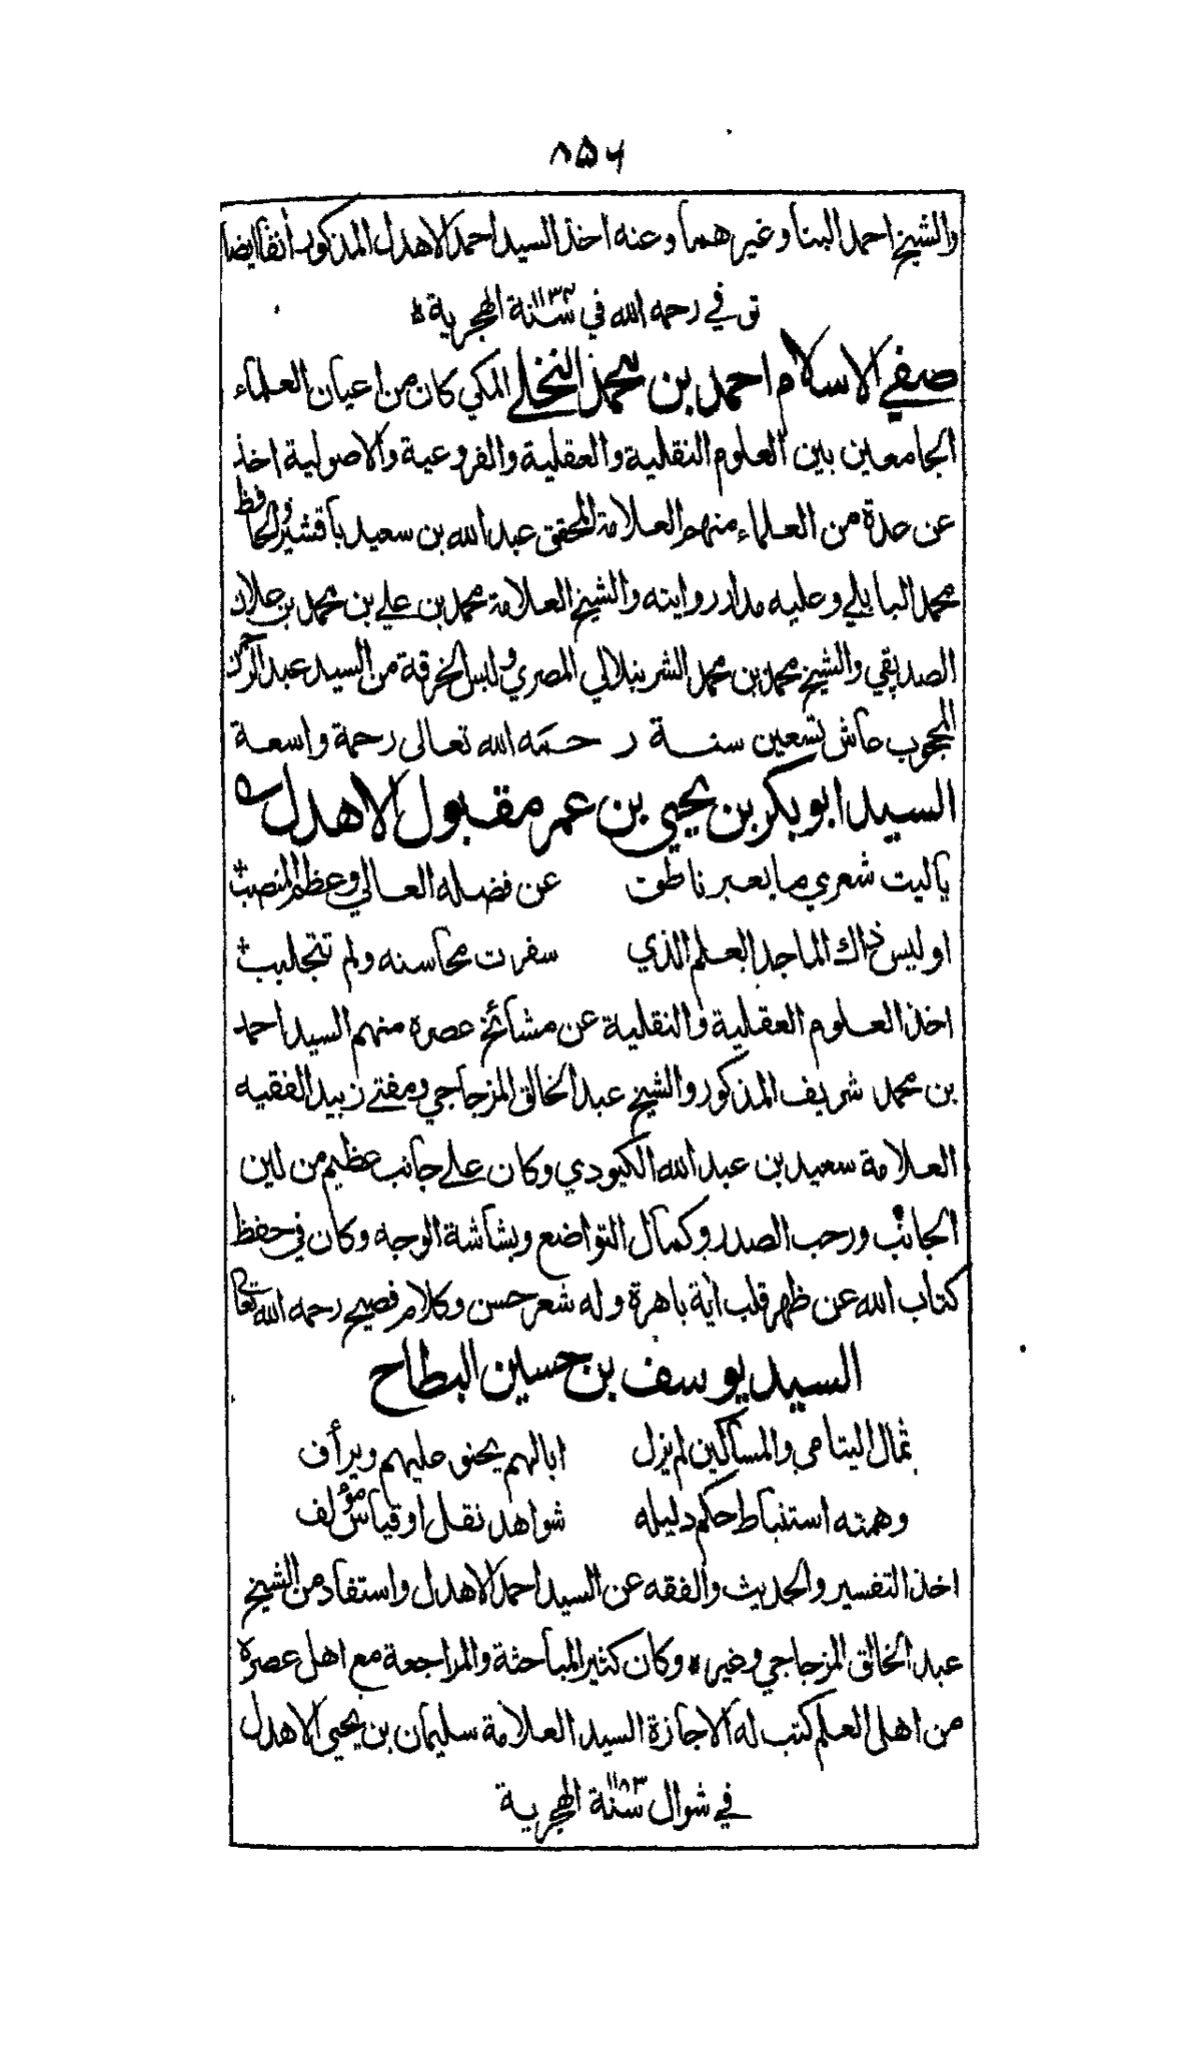 ٨٥٦
والشيخ احمد البنا وغيرهما وعنه اخذ السيد احمد الاهدل المذكور آنفا ايضا
توفي رحمه الله في سنة ١١٣٤ الهجرية ه
صفي الاسلام احمد بن محمد النخلي المكي كان من اعيان العلماء
الجامعين بين العلوم النقلية والعقلية والفروعية والاصولية اخذ
عن عدة من العلماء منهم العلامة المحقق عبد الله بن سعيد باقشير والحافظ
محمد البابلي وعليه مدار روايته والشيخ العلامة محمد بن علي بن محمد بن علان
الصديقي والشيخ محمد بن محمد الشرنبلالي المصري ولبس الخرقة من السيد عبد الرحمن
المحجوب عاش تسعين سنة رحمه الله تعالى رحمة واسعة
السيد ابو بكر بن يحيى بن عمر مقبول الاهدل ه
ياليت شعري ما يعبر ناطق عن فضله العالي وعظم المنصب
اوليس ذاك الماجد العلم الذي سفرت محاسنه ولم تتجلبب
اخذ العلوم العقلية والنقلية عن مشائخ عصره منهم السيد احمد
بن محمد شريف المذكور والشيخ عبد الخالق المزجاجي ومفتي زبيد الفقيه
العلامة سعيد بن عبد الله الكبودي وكان علي جانب عظيم من لين
الجانب ورحب الصدر وكمال التواضع وبشاشة الوجه وكان في حفظ
كتاب الله عن ظهر قلب آية باهرة وله شعر حسن وكلام فصيح رحمه الله تعالى
السيد يوسف بن حسين البطاح
ثمال اليتامى والمساكين لم يزل ابا لهم يحنو عليهم ويرأف
وهمته استنباط حكم دليله شواهد نقل او قياس مؤلف
اخذ التفسير والحديث والفقه عن السيد احمد الاهدل واستفاد من الشيخ
عبد الخالق المزجاجي وغيره وكان كثير المباحثة والمراجعة مع اهل عصره
من اهل العلم كتب له الاجازة السيد العلامة سليمان بن يحيى الاهدل
في شوال سنة ١١٨٣ الهجرية